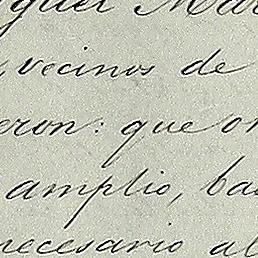 guel Mar
, vecinos de
eron: que o
amplio, bas
necesario al